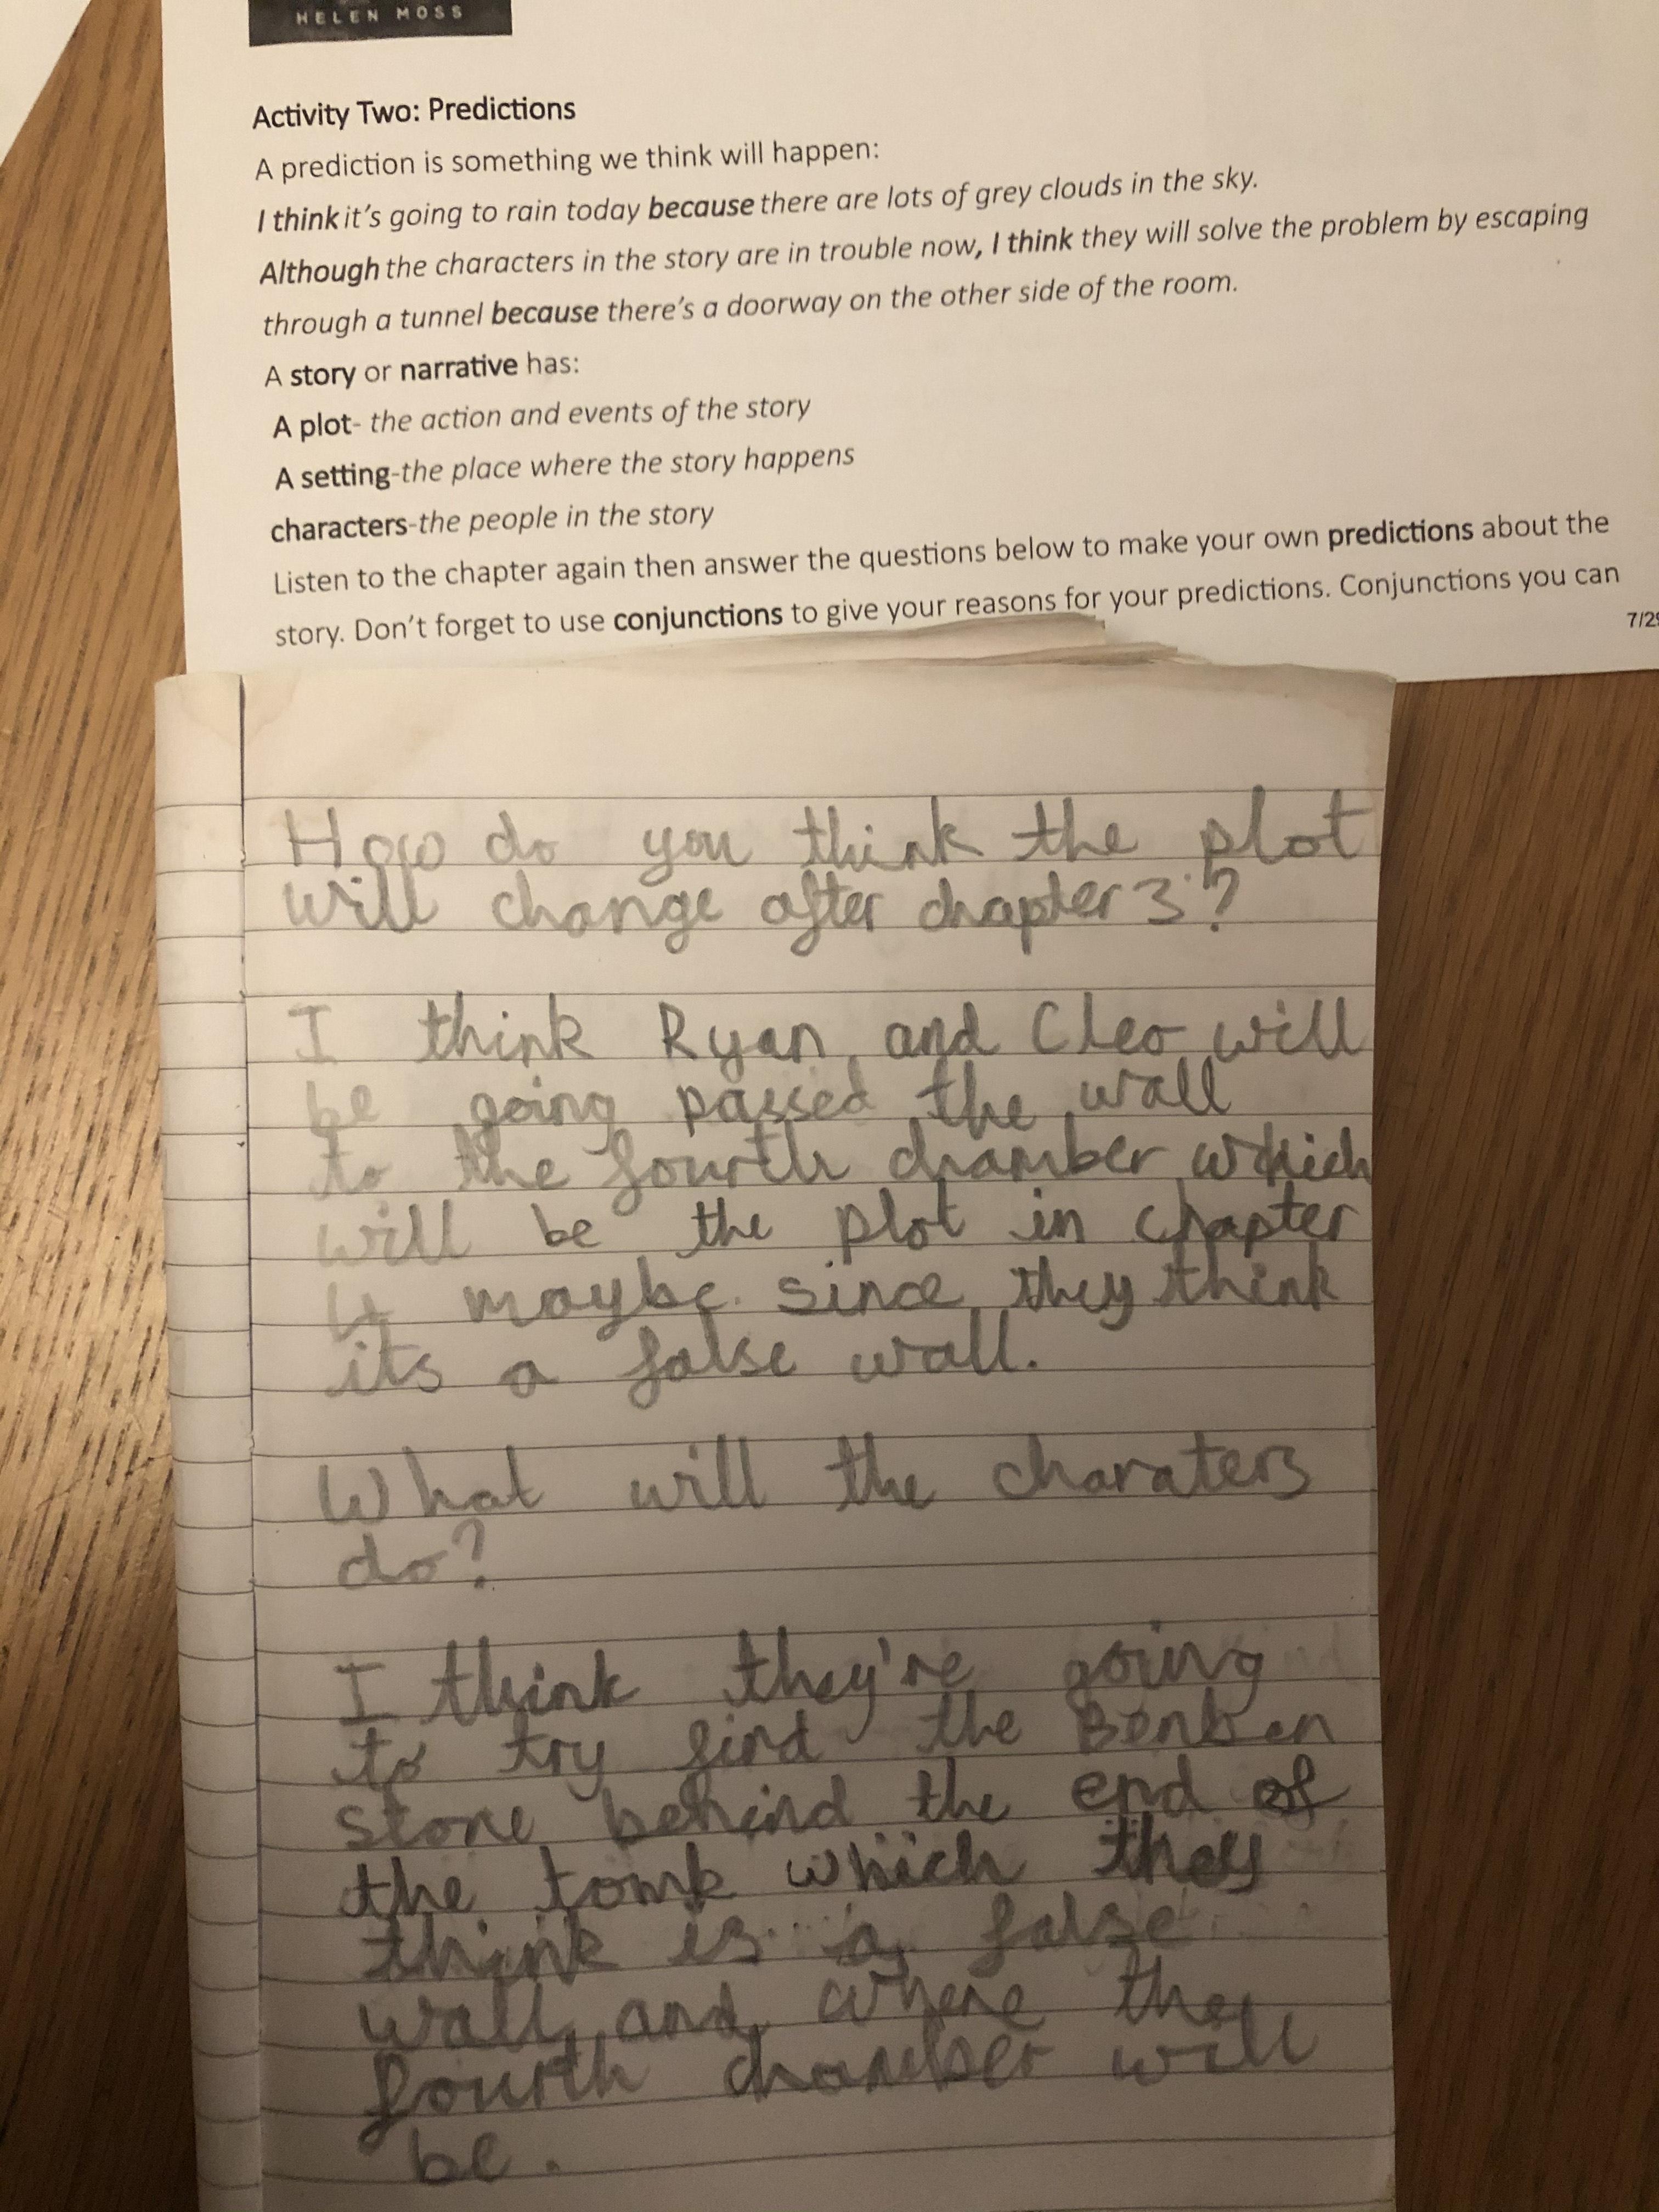 HELEN MOSS
Activity Two: Predictions
A prediction is something we think will happen:
I think it's going to rain today because there are lots of grey clouds in the sky.
Although the characters in the story are in trouble now, I think they will solve the problem by escaping
through a tunnel because there's a doorway on the other side of the room.
A story or narrative has:
A plot- the action and events of the story
A setting-the place where the story happens
characters-the people in the story
Listen to the chapter again then answer the questions below to make your own predictions about the
story. Don't forget to use conjunctions to give your reasons for your predictions. Conjunctions you can
7/29
How do you think the plot
will change after chapter 3?
I think Ryan and Cleo will
be going passed the wall
to the fourth chamber which
will be the plot in chapter
4 maybe since they think
its a false wall.
What will the charaters
do?
I think they're going
to try find the Benben
stone behind the end of
the tomb which they
think is a false
wall and where the
fourth chamber will
be.